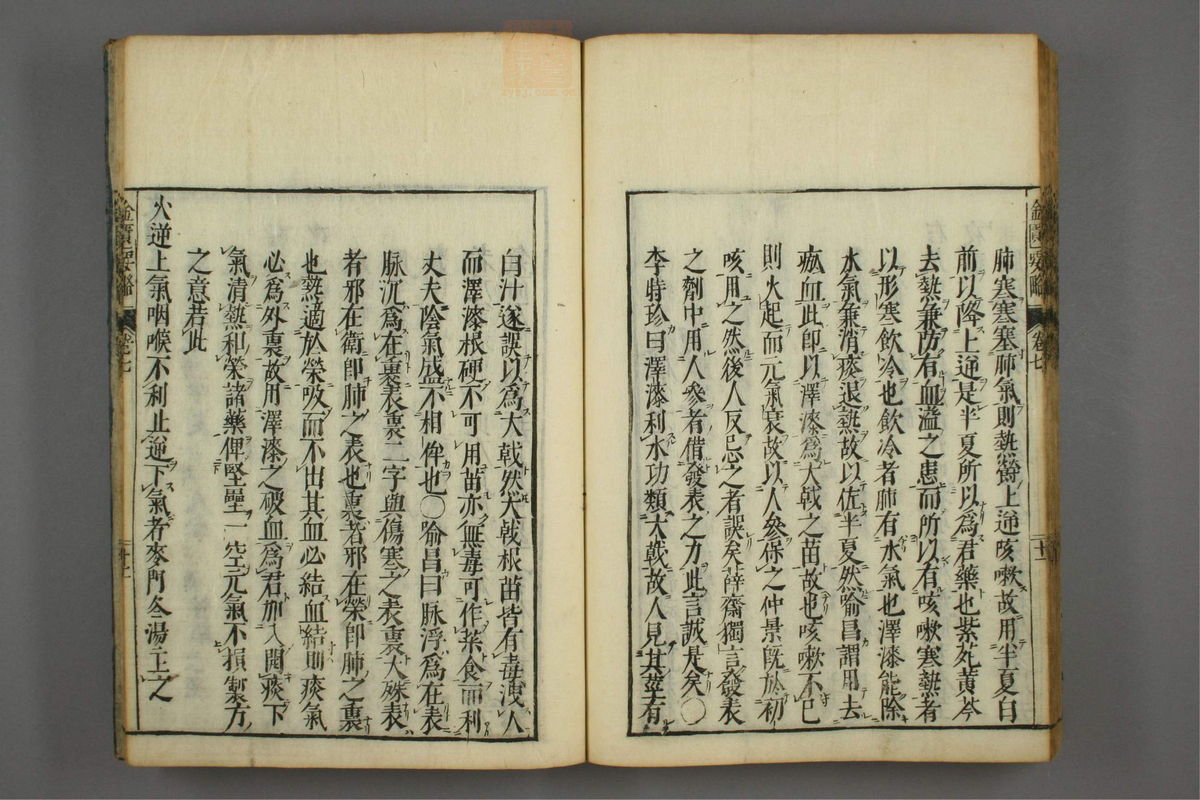 肺寒寒塞肺氣則熱鬱上逆咳嗽故用半夏白
前以降上逆是半夏所以爲君藥也紫菀黃芩
去熱兼防有血溢之患而所以有咳嗽寒熱者
以形寒飲冷也飲冷者肺有水氣也澤漆能除
水氣兼消痰退熱故以佐半夏然喻昌謂用去
瘀血此即以澤漆爲大戟之苗故也咳嗽不已
則火起而元氣衰故以人參保之仲景既於初
咳用之然後人反忌之者誤矣薛齋獨言發表
之劑中用人參者借發表之力此言誠是矣〇
李時珍曰澤漆利水功類大戟故人見其莖有
白汁遂誤以爲大戟然大戟根苗皆有毒洩人
而澤漆根硬不可用苗亦無毒可作菜食而利
丈夫陰氣盛不相侔也〇喻昌曰脉浮爲在表
脉沉爲在裏表裏二字與傷寒之表裏大殊表
者邪在衛卽肺之表也裏者邪在榮卽肺之裏
也熱過於榮吸而不出其血必結血結則痰氣
必爲外裹故用澤漆之破血爲君加入開痰下
氣清熱和榮諸藥俾堅壘一空元氣不損製方
之意若此
火逆上氣咽喉不利止逆下氣者麥門冬湯主之
金匱要略
卷七